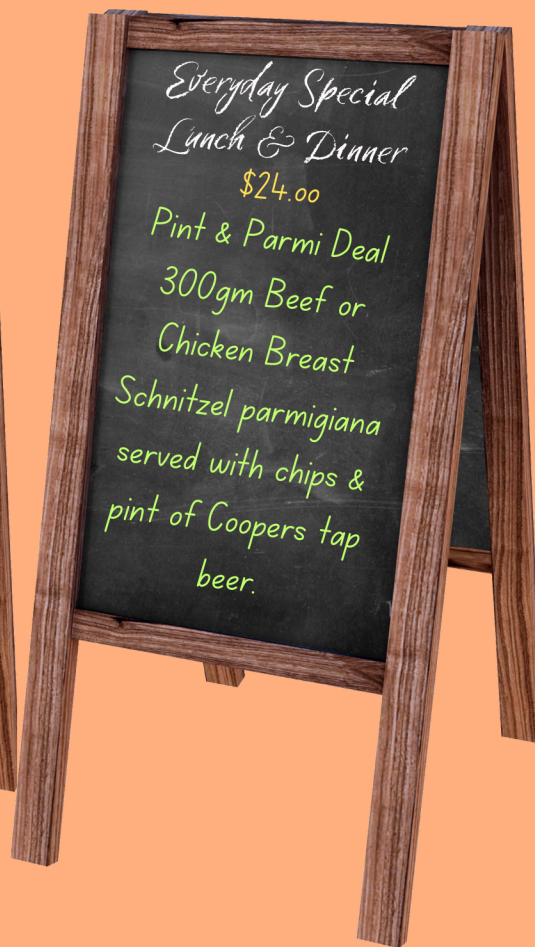 Everyday Special
Lunch & Dinner
$24.00
Pint & Parmi Deal
300gm Beef or
Chicken Breast
Schnitzel parmigiana
served with chips &
pint of Coopers tap
beer.